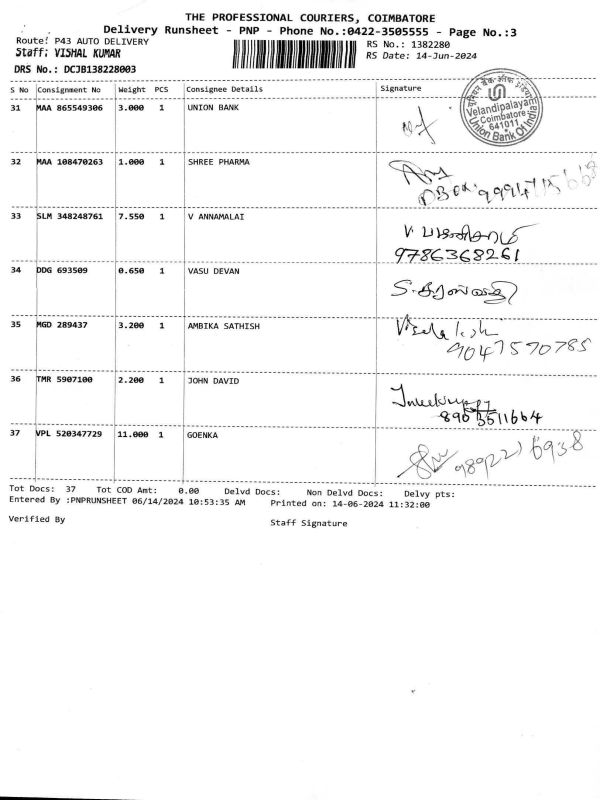 THE PROFESSIONAL COURIERS, COIMBATORE
Delivery Runsheet - PNP - Phone No.:0422-3505555 - Page No.:3
Route: P43 AUTO DELIVERY
RS No.: 1382280
Staff: VISHAL KUMAR
RS Date: 14-Jun-2024
DRS No.: DCJB138228003
S No Consignment No Weight PCS Consignee Details Signature
यूनियन बैंक ऑफ इंडिया
Velandipalayam
Coimbatore
641011
Union Bank Of India
31 MAA 865549306 3.000 1 UNION BANK
32 MAA 108470263 1.000 1 SHREE PHARMA
33 SLM 348248761 7.550 1 V ANNAMALAI
9786368261
34 DDG 693509 0.650 1 VASU DEVAN
S. சுரஸ்வதி
35 MGD 289437 3.200 1 AMBIKA SATHISH
9047570785
36 TMR 5907100 2.200 1 JOHN DAVID
8903511664
37 VPL 520347729 11.000 1 GOENKA
Tot Docs: 37 Tot COD Amt: 0.00 Delvd Docs: Non Delvd Docs: Delvy pts:
Entered By :PNPRUNSHEET 06/14/2024 10:53:35 AM Printed on: 14-06-2024 11:32:00
Verified By
Staff Signature